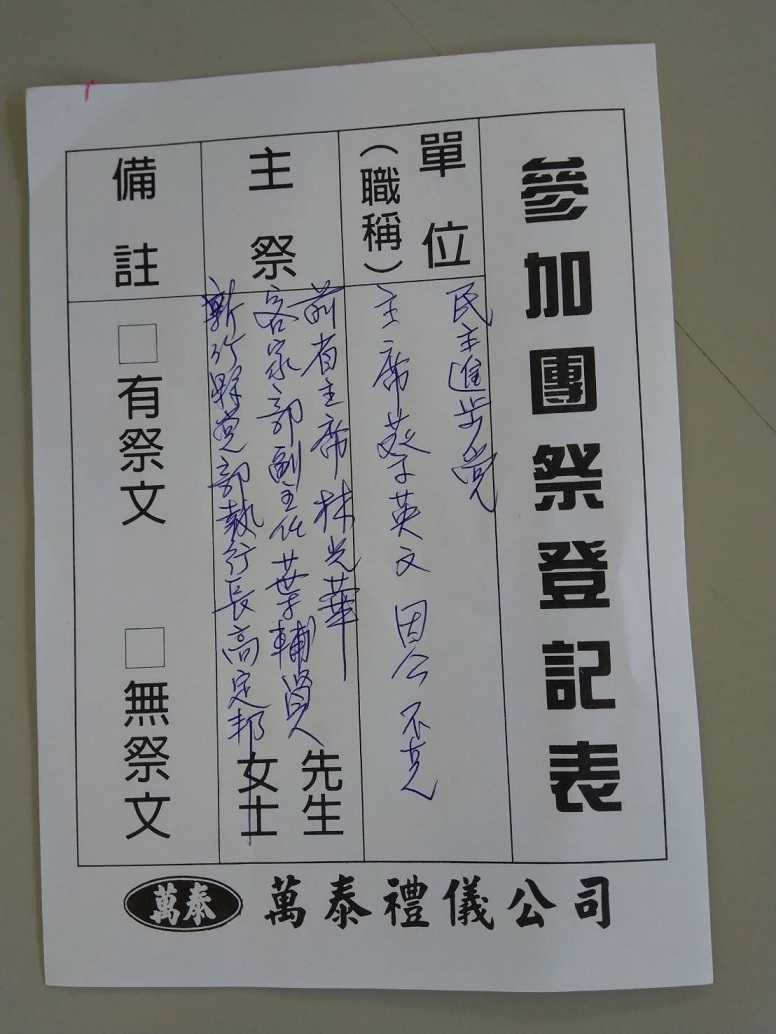 參加團祭登記表
單位
（職稱）
民主進步党
主席蔡英文因公不克
主祭
前省主席林光華
客家部副主任葉輔賢
新竹縣党部執行長高定邦
先生
女士
備註
□有祭文
□無祭文
萬泰 萬泰禮儀公司